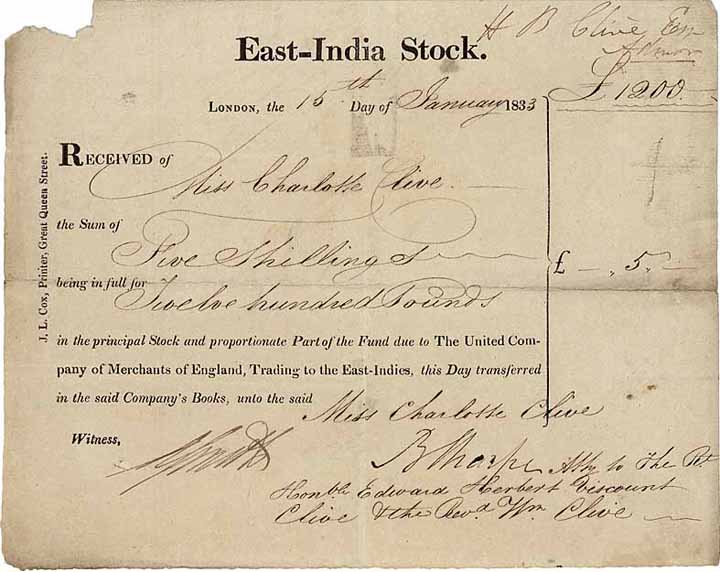 H B Clive Esq
East-India Stock.
£1200
LONDON, the 15th Day of January 1833
RECEIVED of
Miss Charlotte Clive
the Sum of
Five Shillings
£ — . 5. —
being in full for
Twelve hundred Pounds
in the principal Stock and proportionate Part of the Fund due to The United Com-
pany of Merchants of England, Trading to the East-Indies, this Day transferred
in the said Company's Books, unto the said
Miss Charlotte Clive
Witness,
B Sharpe Atty to The Rt
Honble Edward Herbert Viscount
Clive & the Revd Wm Clive
J. L. Cox, Printer, Great Queen Street.